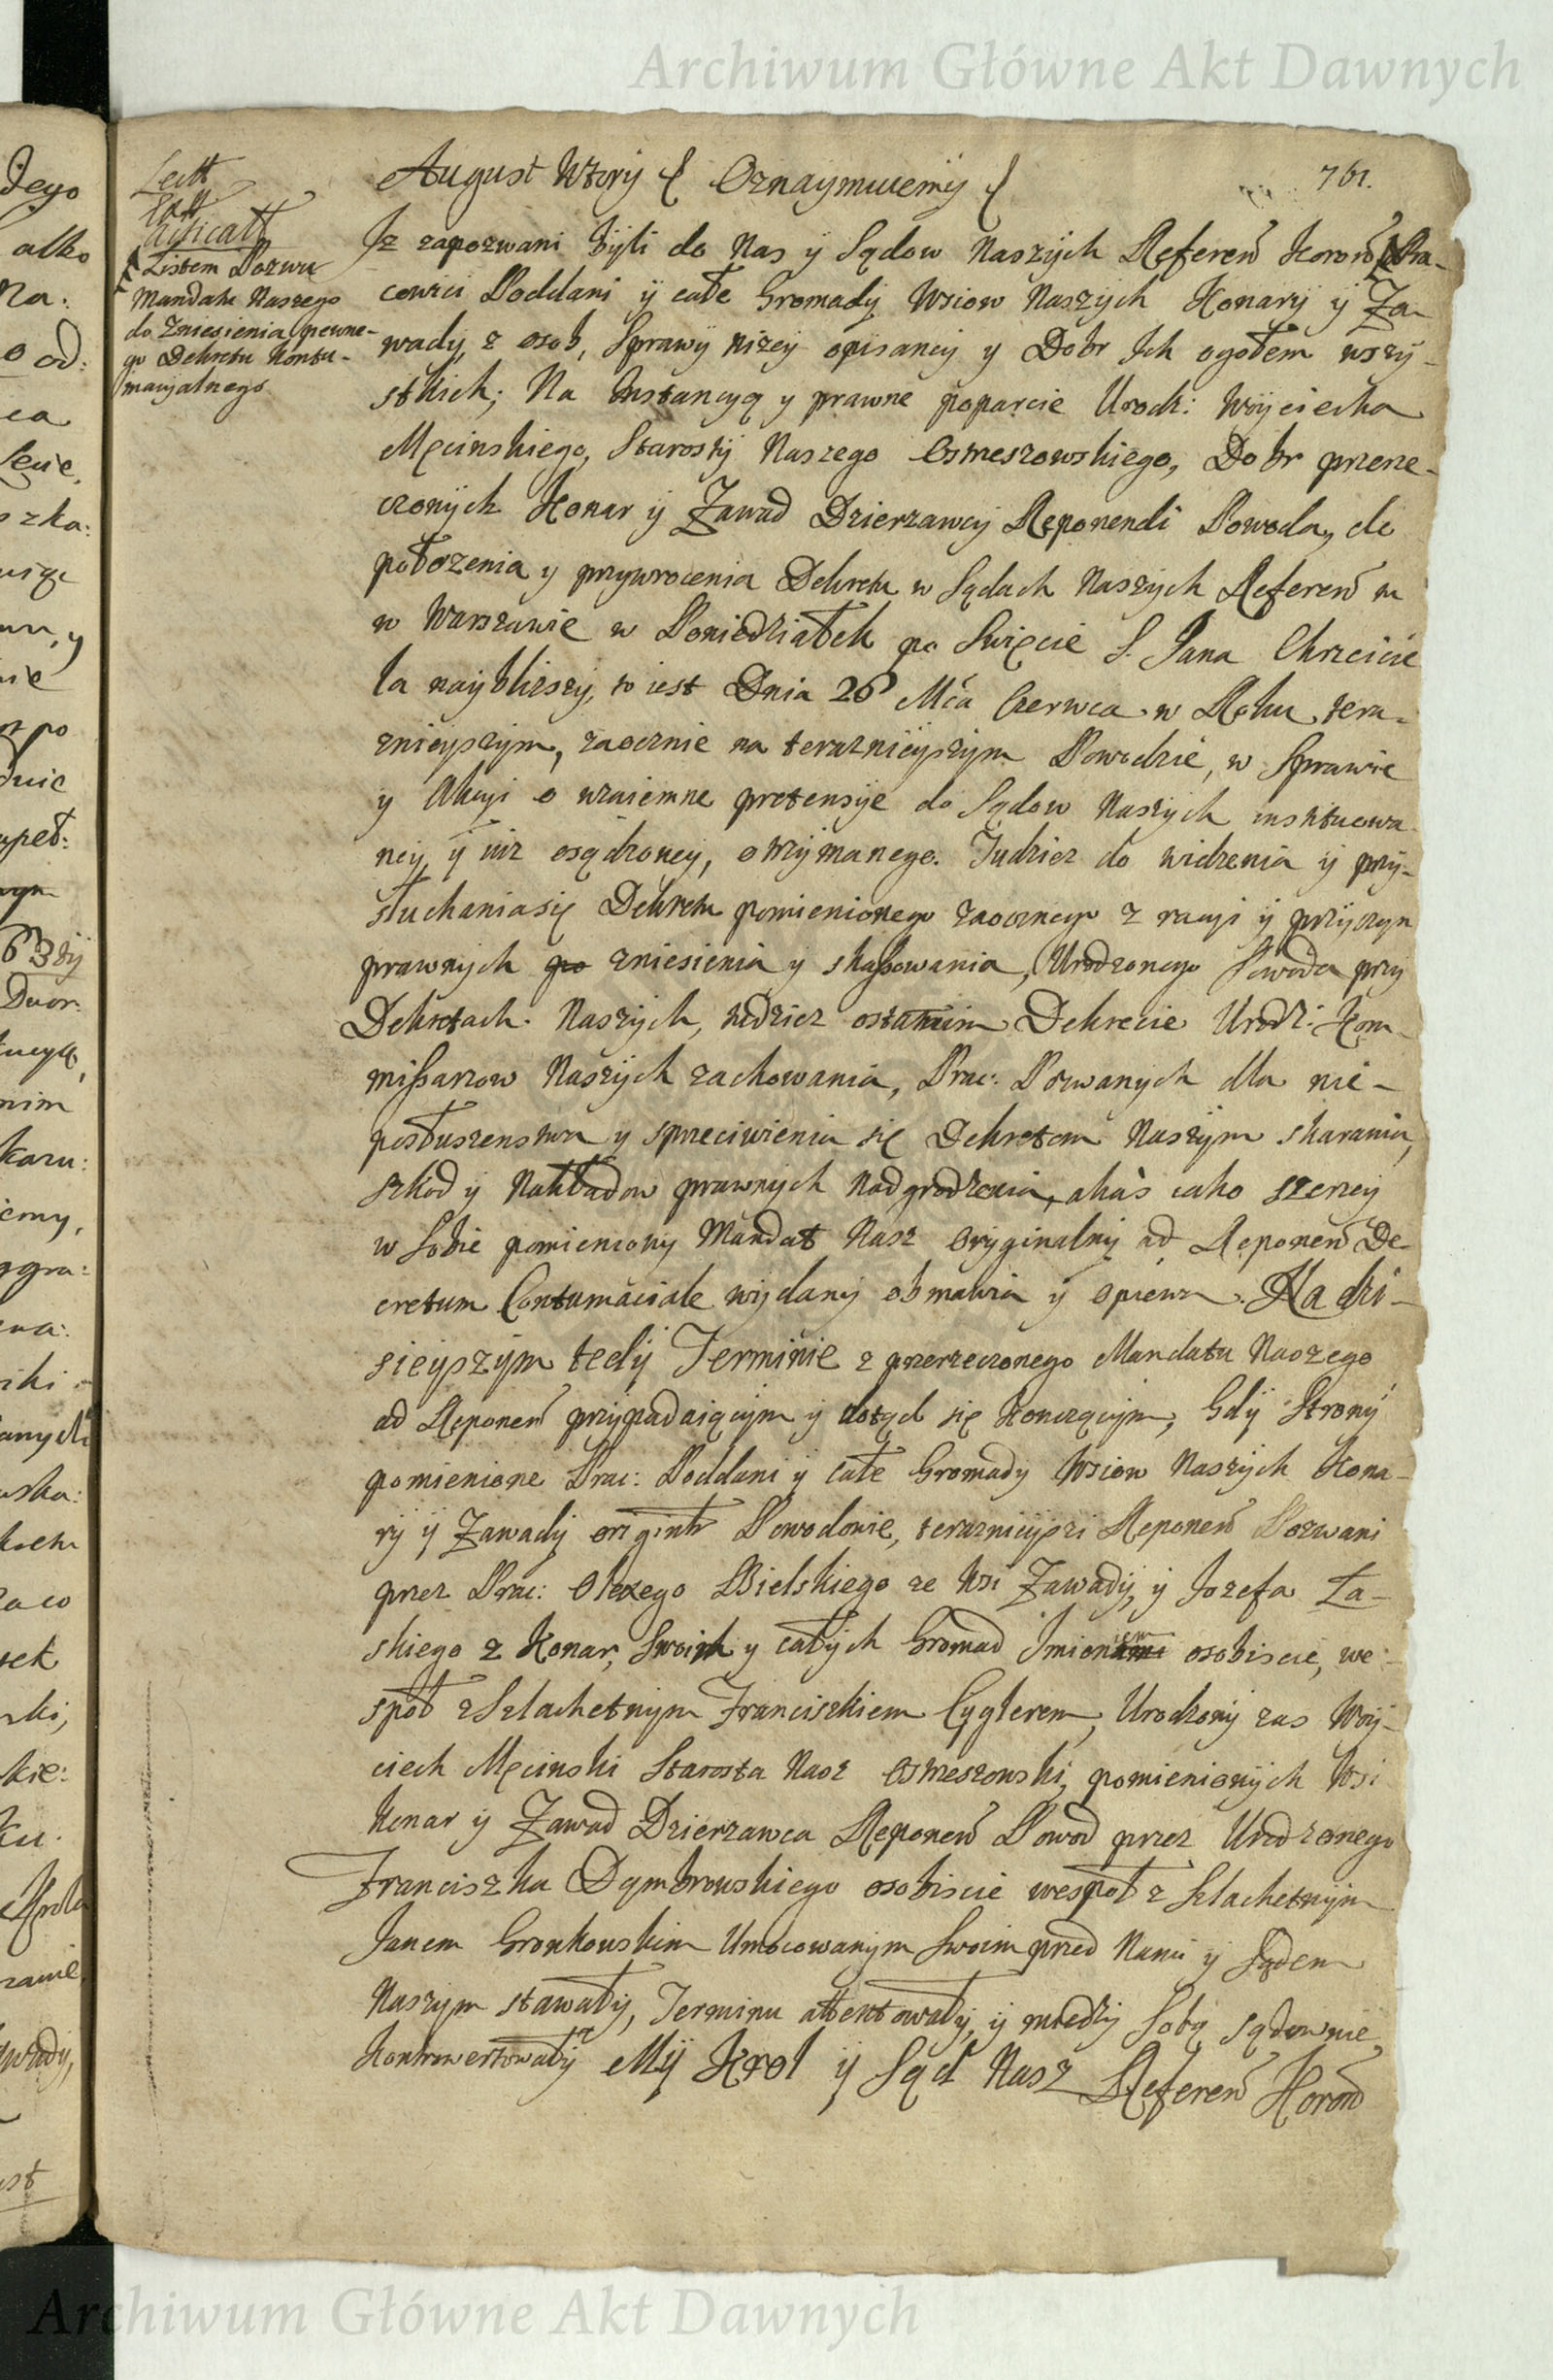 Archiwum Główne Akt Dawnych
761.
August Wtory & Oznaymuiemy &
Lectt
Listem Pozwu
Mandatu Naszego
do Zniesienia pewne-
go Dekretu Kontu-
macyalnego
Iz zapozwani byli do Nas y Sądow Naszych Referen Koron Pra-
cowici Poddani y całe Gromady Wsiow Naszych Konary y Za-
wady, z osob, Sprawy nizey opisaney y Dobr Ich ogołem wszy-
stkich; Na Instancyą y prawne poparcie Urodz: Woyciecha
Męcinskiego, Starosty Naszego Ostrzeszowskiego, Dobr przerze-
czonych Konar y Zawad Dzierzawcy Reponendi Powoda, do
połozenia y przywrocenia Dekretu w Sądach Naszych Referen
w Warszawie w Poniedziałek po Swięcie S. Jana Chrzcicie
la naybliszy, to iest Dnia 26 Mca Czerwca w Roku tera-
znieyszym, zaocznie na teraznieyszym Powodzie, w Sprawie
y Akcyi o wzaiemne pretensye do Sądow Naszych instituowa
ney, y iuz osądzoney, otrzymanego. Tudziez do widzenia y przy-
słuchania się Dekretu pomienionego zaocznego z racyi y przyczyn
prawnych go zniesienia y skassowania, Urodzonego Powoda przy
Dekretach Naszych, tudziez ostatnim Dekrecie Urodz: Kom-
missarzow Naszych zachowania, Prac: Pozwanych dla nie-
posłuszenstwa y sprzeciwienia się Dekretom Naszym skarania,
szkod y Nakładow prawnych Nadgrodzenia, aliàs iako szerzey
w Sobie pomieniony Mandat Nasz Oryginalny ad Reponen De-
cretum Contumaciale wydany obmawia y opiewa. Na dzi-
sieyszym tedy Terminie z przerzeczonego Mandatu Naszego
ad Reponen przypadaiącym y dotąd się Konczącym, Gdy Strony
pomienione Prac: Poddani y całe Gromady Wsiow Naszych Kona-
ry y Zawady Powodowie, teraznieyszi Reponen Pozwani
przez Prac: Bielskiego ze Wsi Zawady, y Jozefa Ła-
skiego z Konar, Swoim y całych Gromad Imieniem osobiscie, we-
społ z Szlachetnym Franciszkiem Cyglerem, Urodzony zas Woy-
ciech Męcinski Starosta Nasz Ostrzeszowski, pomienionych Wsi
Konar y Zawad Dzierzawca Reponen Powod przez Urodzonego
Franciszka Dąmbrowskiego osobiscie wespoł z Szlachetnym
Janem Gronkowskim Umocowanym Swoim przed Nami y Sądem
Naszym stawały, Terminu attentowały, y między Sobą sądownie
Kontrowertowały My Krol y Sąd Nasz Referen Koron
Archiwum Główne Akt Dawnych